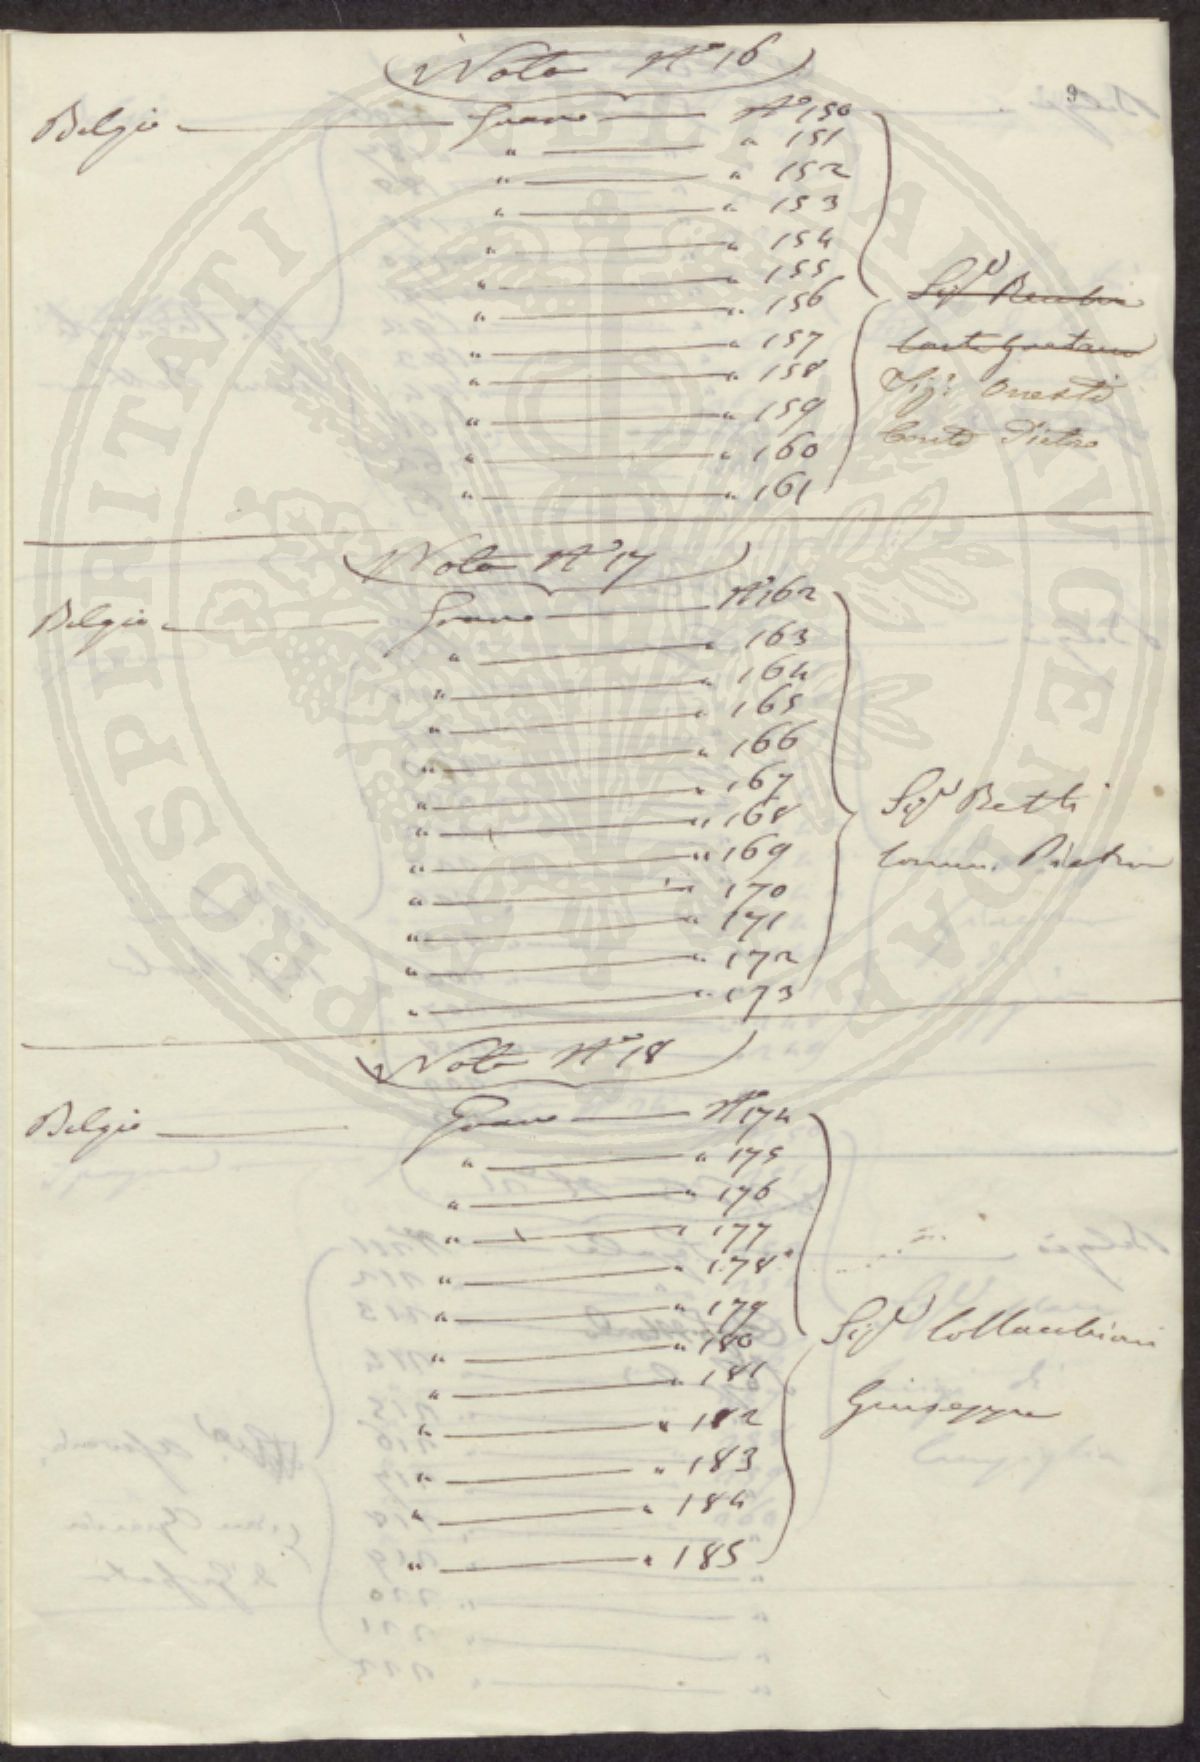 Nota N° 16
9
Belgio Grano N° 150
" " 151
" " 152
" " 153
" " 154
" " 155
" " 156
" " 157
" " 158
" " 159
" " 160
" " 161
Sigr
Conte Gaetano
Sigr Onesti
Conte Pietro
Nota N° 17
Belgio Grano N° 162
" " 163
" " 164
" " 165
" " 166
" " 167
" " 168
" " 169
" " 170
" " 171
" " 172
" " 173
Sigr Betti
Comm. Pietro
Nota N° 18
Belgio Grano N° 174
" " 175
" " 176
" " 177
" " 178
" " 179
" " 180
" " 181
" " 182
" " 183
" " 184
" " 185
Sigr Collacchioni
Giuseppe
PROSPERITATI PUBLICAE AUGENDAE